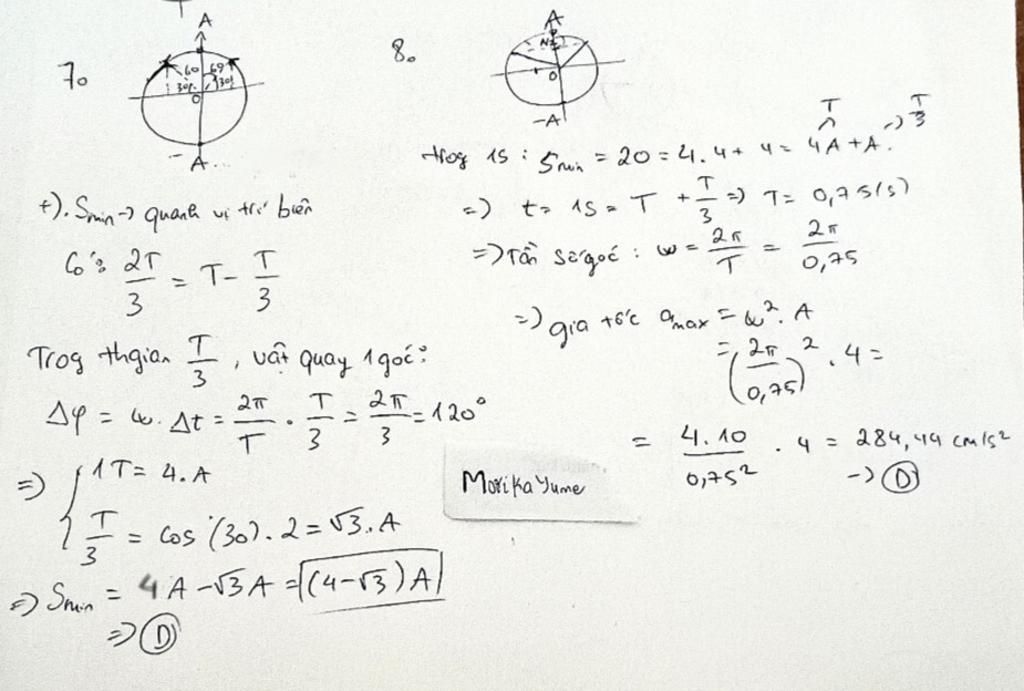 7.
A
60 69
30° 30°
O
-A
+). Smin → quanh vị trí biên
Có: 2T/3 = T - T/3
Trog thgian T/3, vật quay 1 góc:
Δφ = ω. Δt = 2π/T . T/3 = 2π/3 = 120°
=> { 1T = 4.A
T/3 = cos (30). 2 = √3. A
=> Smin = 4A - √3A = (4-√3)A
=> D
8.
A
O
-A
trog 1s : Smin = 20 = 4.4 + 4 = 4A + A. → T/3
T
=> t = 1s = T + T/3 => T = 0,75(s)
=> Tần số góc : ω = 2π/T = 2π/0,75
=> gia tốc amax = ω². A
= (2π/0,75)² . 4 =
= 4.10/0,75² . 4 = 284,44 cm/s²
→ D
MorikaYume